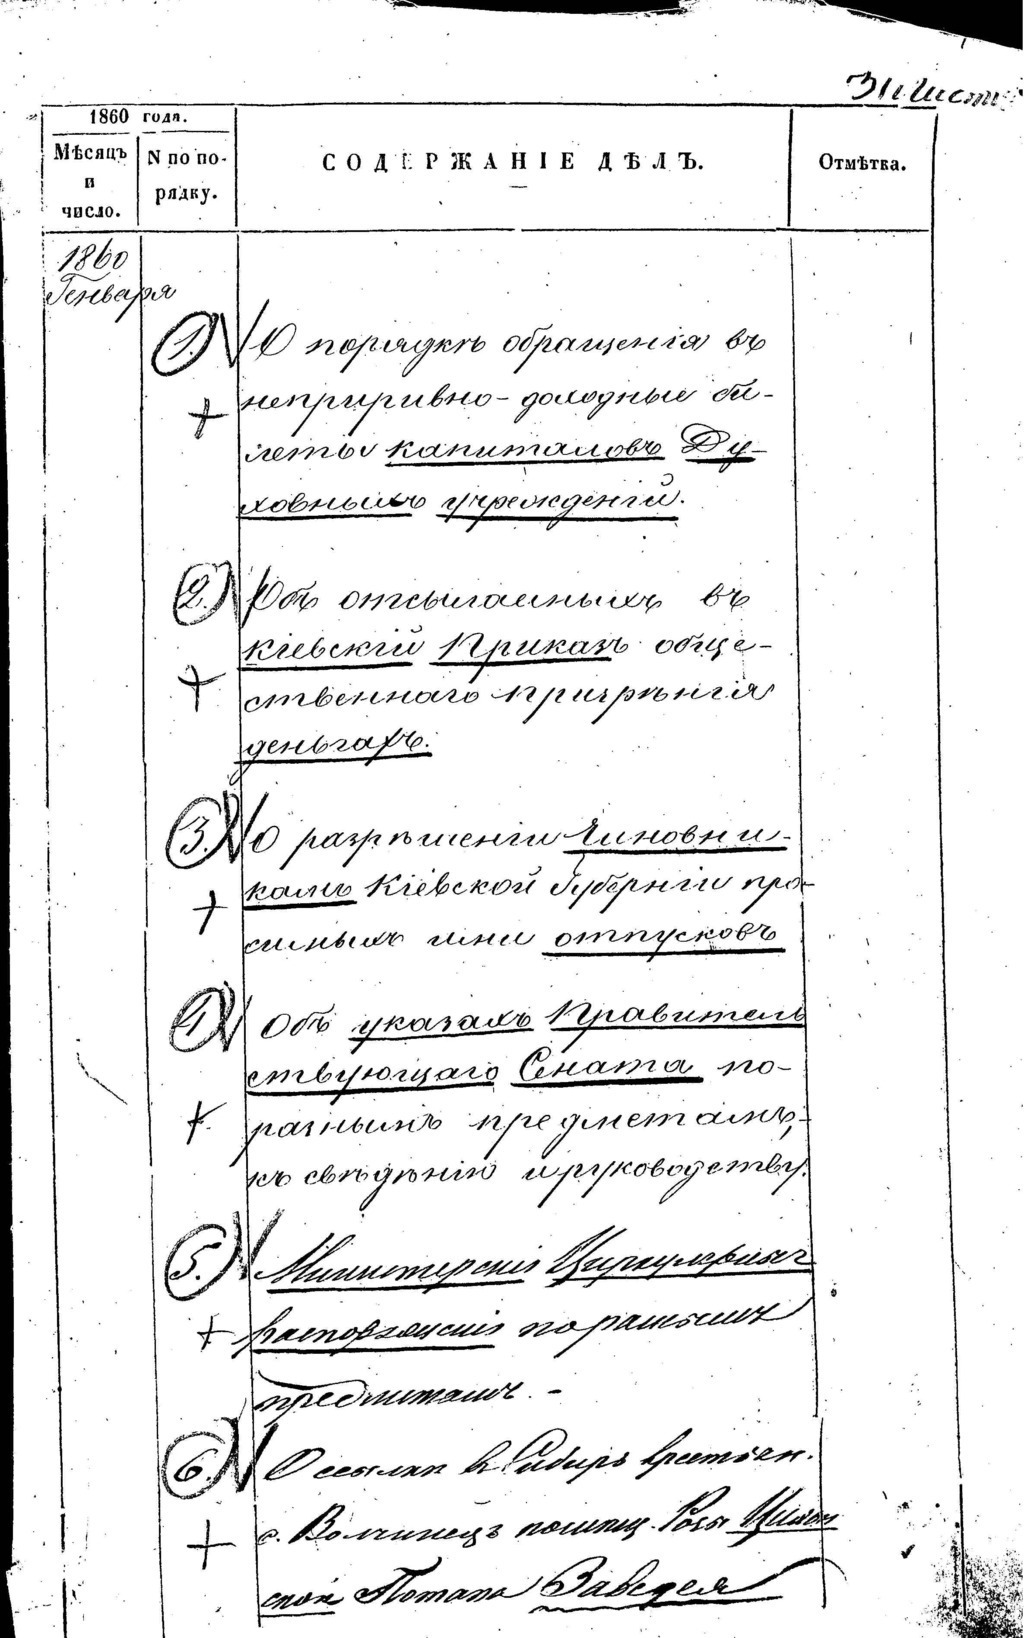 1860 года.
Мѣсяцъ и число.
N по порядку.
СОДЕРЖАНІЕ ДѢЛЪ.
Отмѣтка.
1860
Генваря
1. О порядкѣ обращенія въ
непрерывно-доходные би-
леты капиталовъ Ду-
ховныхъ учрежденій.
2. Объ отсылаемыхъ въ
Кіевскій Приказъ обще-
ственнаго призрѣнія
деньгахъ.
3. О разрѣшеніи Чиновни-
камъ Кіевской Губерніи про
симыхъ ими отпусковъ
4. Объ указахъ Правитель
ствующаго Сената по
разнымъ предметамъ,
къ свѣдѣнію и руководству.
5. Министерскія Циркулярныя
распоряженія по разнымъ
предметамъ. -
6. О ссылкѣ въ Сибирь крестьян.
с. помѣщ. Розы
ской Потапа